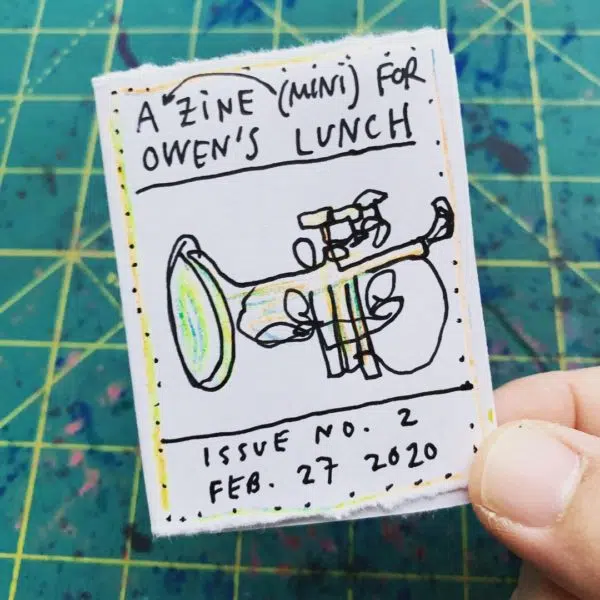 A ZINE (MINI) FOR
OWEN'S LUNCH
ISSUE NO. 2
FEB. 27 2020